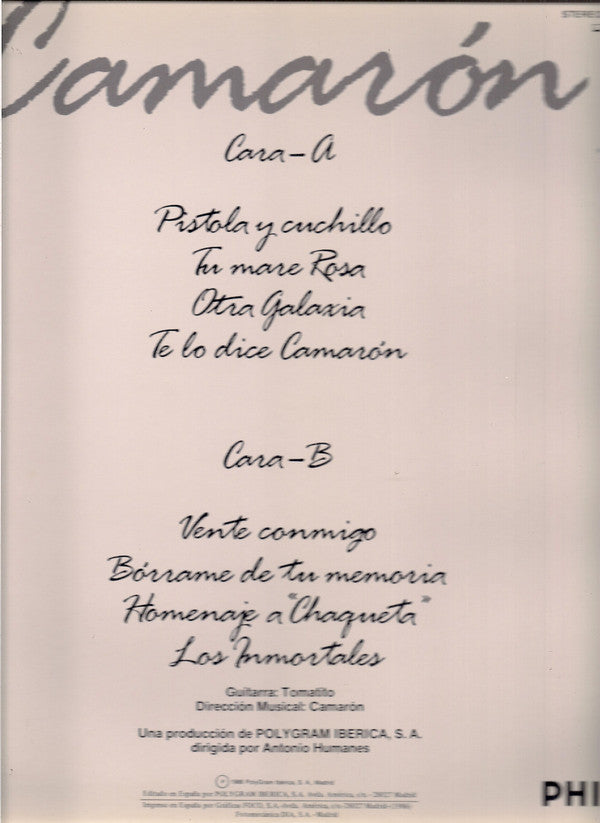 STEREO
Camarón
Cara-A
Pistola y cuchillo
Tu mare Rosa
Otra Galaxia
Te lo dice Camarón
Cara-B
Vente conmigo
Bórrame de tu memoria
Homenaje a "Chaqueta"
Los Inmortales
Guitarra: Tomatito
Dirección Musical: Camarón
Una producción de POLYGRAM IBERICA, S. A.
dirigida por Antonio Humanes
1986 PolyGram Ibérica, S. A., Madrid
Editado en España por POLYGRAM IBERICA, S.A. Avda. América, s/n. - 28027 Madrid
Impreso en España por Gráficas S.A. Avda. América, s/n - 28027 Madrid (1986)
Fotomecánica S.A. - Madrid
PHI